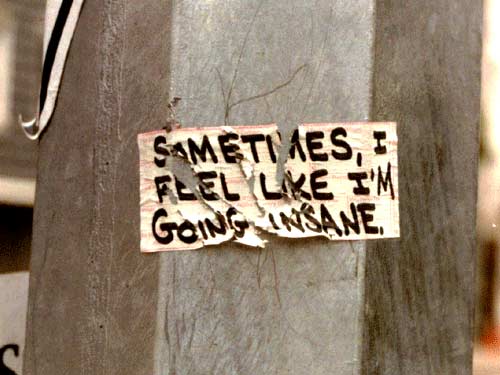 SOMETIMES, I
FEEL LIKE I'M
GOING INSANE.
S